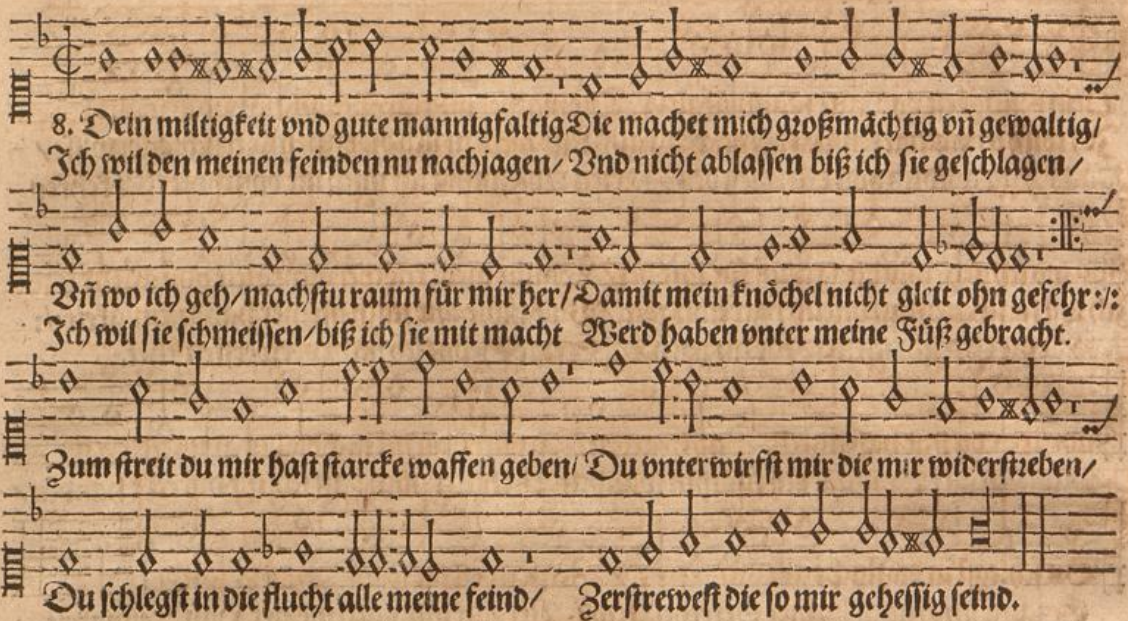 8. Dein miltigkeit vnd gute mannigfaltig Die machet mich großmächtig vñ gewaltig/
Ich wil den meinen feinden nu nachjagen/ Vnd nicht ablassen biß ich sie geschlagen/
Vñ wo ich geh/machstu raum für mir her/Damit mein knöchel nicht gleit ohn gefehr :/:
Ich wil sie schmeissen/biß ich sie mit macht Werd haben vnter meine Füß gebracht.
Zum streit du mir hast starcke waffen geben/ Du vnterwirfst mir die mir widerstreben/
Du schlegst in die flucht alle meine feind/ Zerstrewest die so mir gehessig seind.